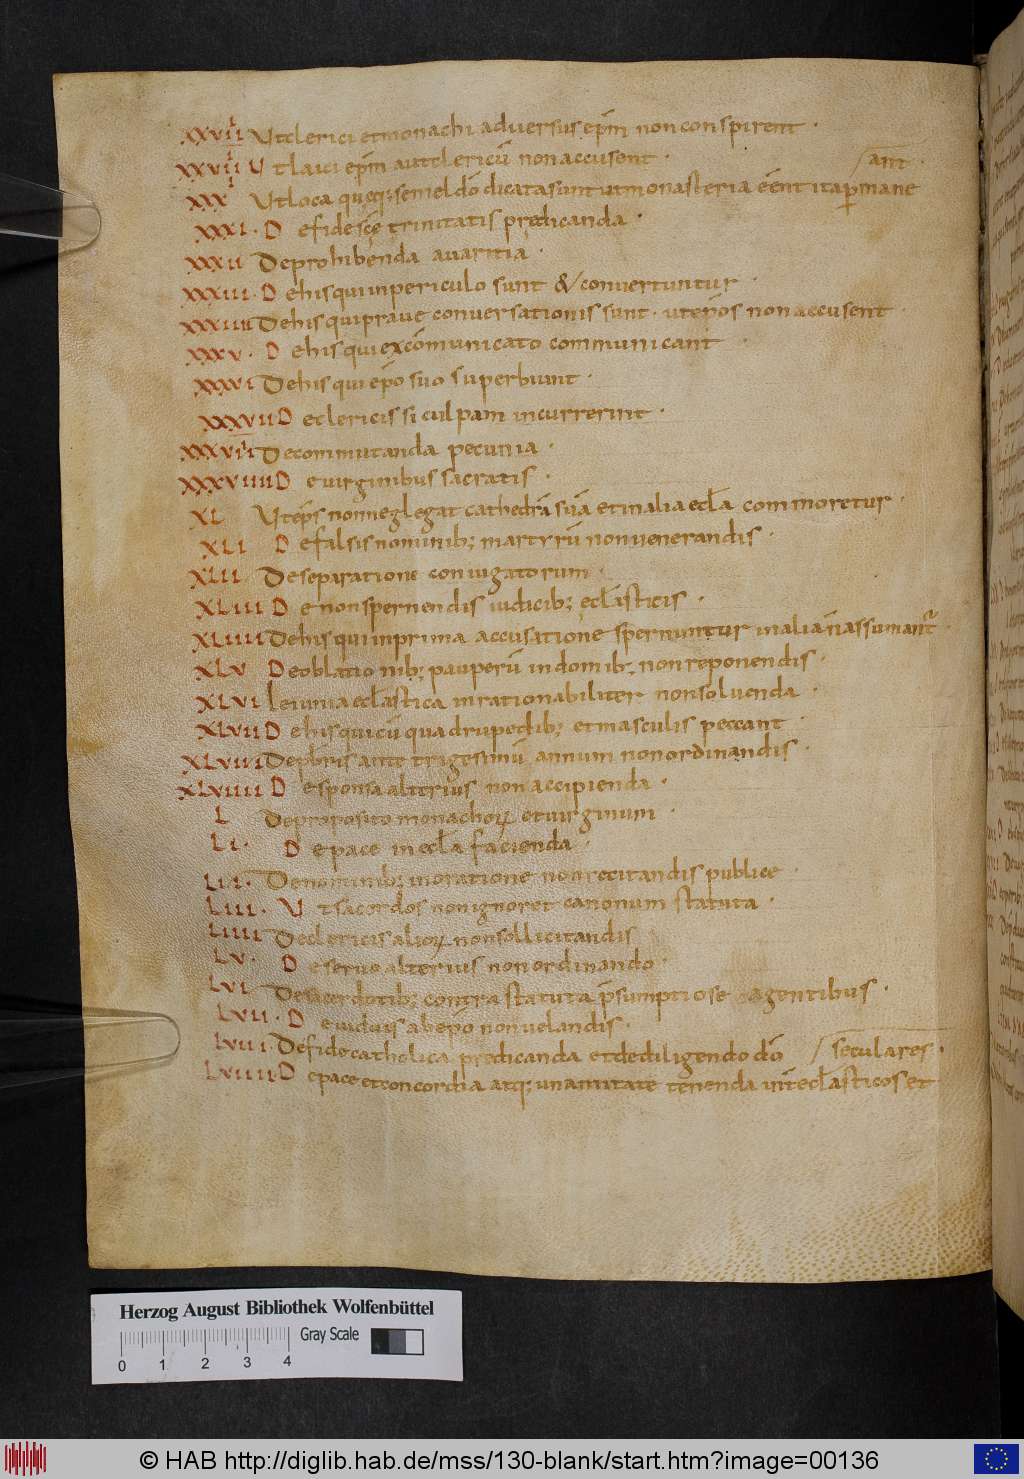 XXVIII Ut clerici et monachi adversus ep̄m non conspirent ·
XXVIIII Ut laici ep̄m aut clericū non accusent ·
ant ·
XXX Ut loca quęcq; semel dō dicata sunt ut monasteria eēnt ita p̱mane
XXXI · De fide scę trinitatis predicanda ·
XXXII De prohibenda avaritia ·
XXXIII · De his qui in periculo sunt & convertuntur ·
XXXIIII De his qui prave conversationis sunt · ut ep̄os non accusent ·
XXXV · De his qui excōmunicato communicant ·
XXXVI De his qui ep̄o suo superbiunt ·
XXXVII De clericis si culpam incurrerint ·
XXXVIII De commutanda pecunia ·
XXXVIIII De virginibus sacratis ·
XL Ut ep̄s non neglegat cathedrā suā et in alia eccła commoretur ·
XLI De falsis nominib; martyrū non venerandis ·
XLII De separatione coniugatorum ·
XLIII De non spernendis iudicib; ęcłasticis ·
XLIIII De his qui in prima accusatione spernuntur in alia n̄ assumant᷑ ·
XLV De oblationib; pauperū in domib; non reponendis ·
XLVI Ieiunia ecłastica inrationabiliter non solvenda ·
XLVII De his qui cū quadrupedib; et masculis peccant ·
XLVIII De p̄bris ante trigesimū annum non ordinandis ·
XLVIIII De sponsa alterius non accipienda ·
L De proposito monachoꝝ et virginum ·
LI · De pace in eccła facienda ·
LII · De nominib; in oratione non recitandis publice ·
LIII · Ut sacerdos non ignoret canonum statuta ·
LIIII De clericis alioꝝ non sollicitandis
LV · De servo alterius non ordinando ·
LVI De sacerdotib; contra statuta p̄sumptiose agentibus ·
LVII · De viduis ab ep̄o non velandis ·
LVIII · De fide catholica predicanda et de diligendo dō
seculares ·
LVIIII De pace et concordia atq; unanimitate tenenda int̄ ecłasticos et
Herzog August Bibliothek Wolfenbüttel
Gray Scale
0 1 2 3 4
© HAB http://diglib.hab.de/mss/130-blank/start.htm?image=00136